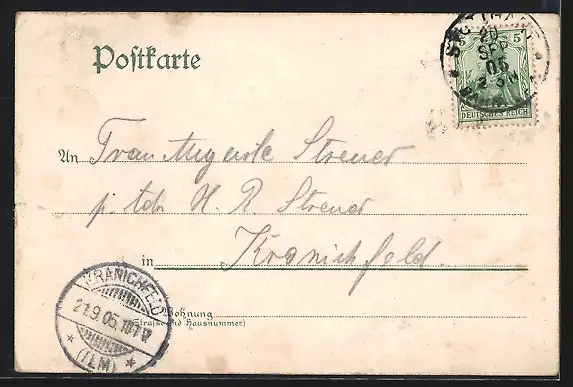 Postkarte
5 5
20
SEP
05
2-3N
DEUTSCHES REICH
An Frau Streuer
p. adr. H. R. Streuer
in Kranichfeld
KRANICHFELD
21.9.05.
* (ILM) *
Wohnung
(Straße und Hausnummer)